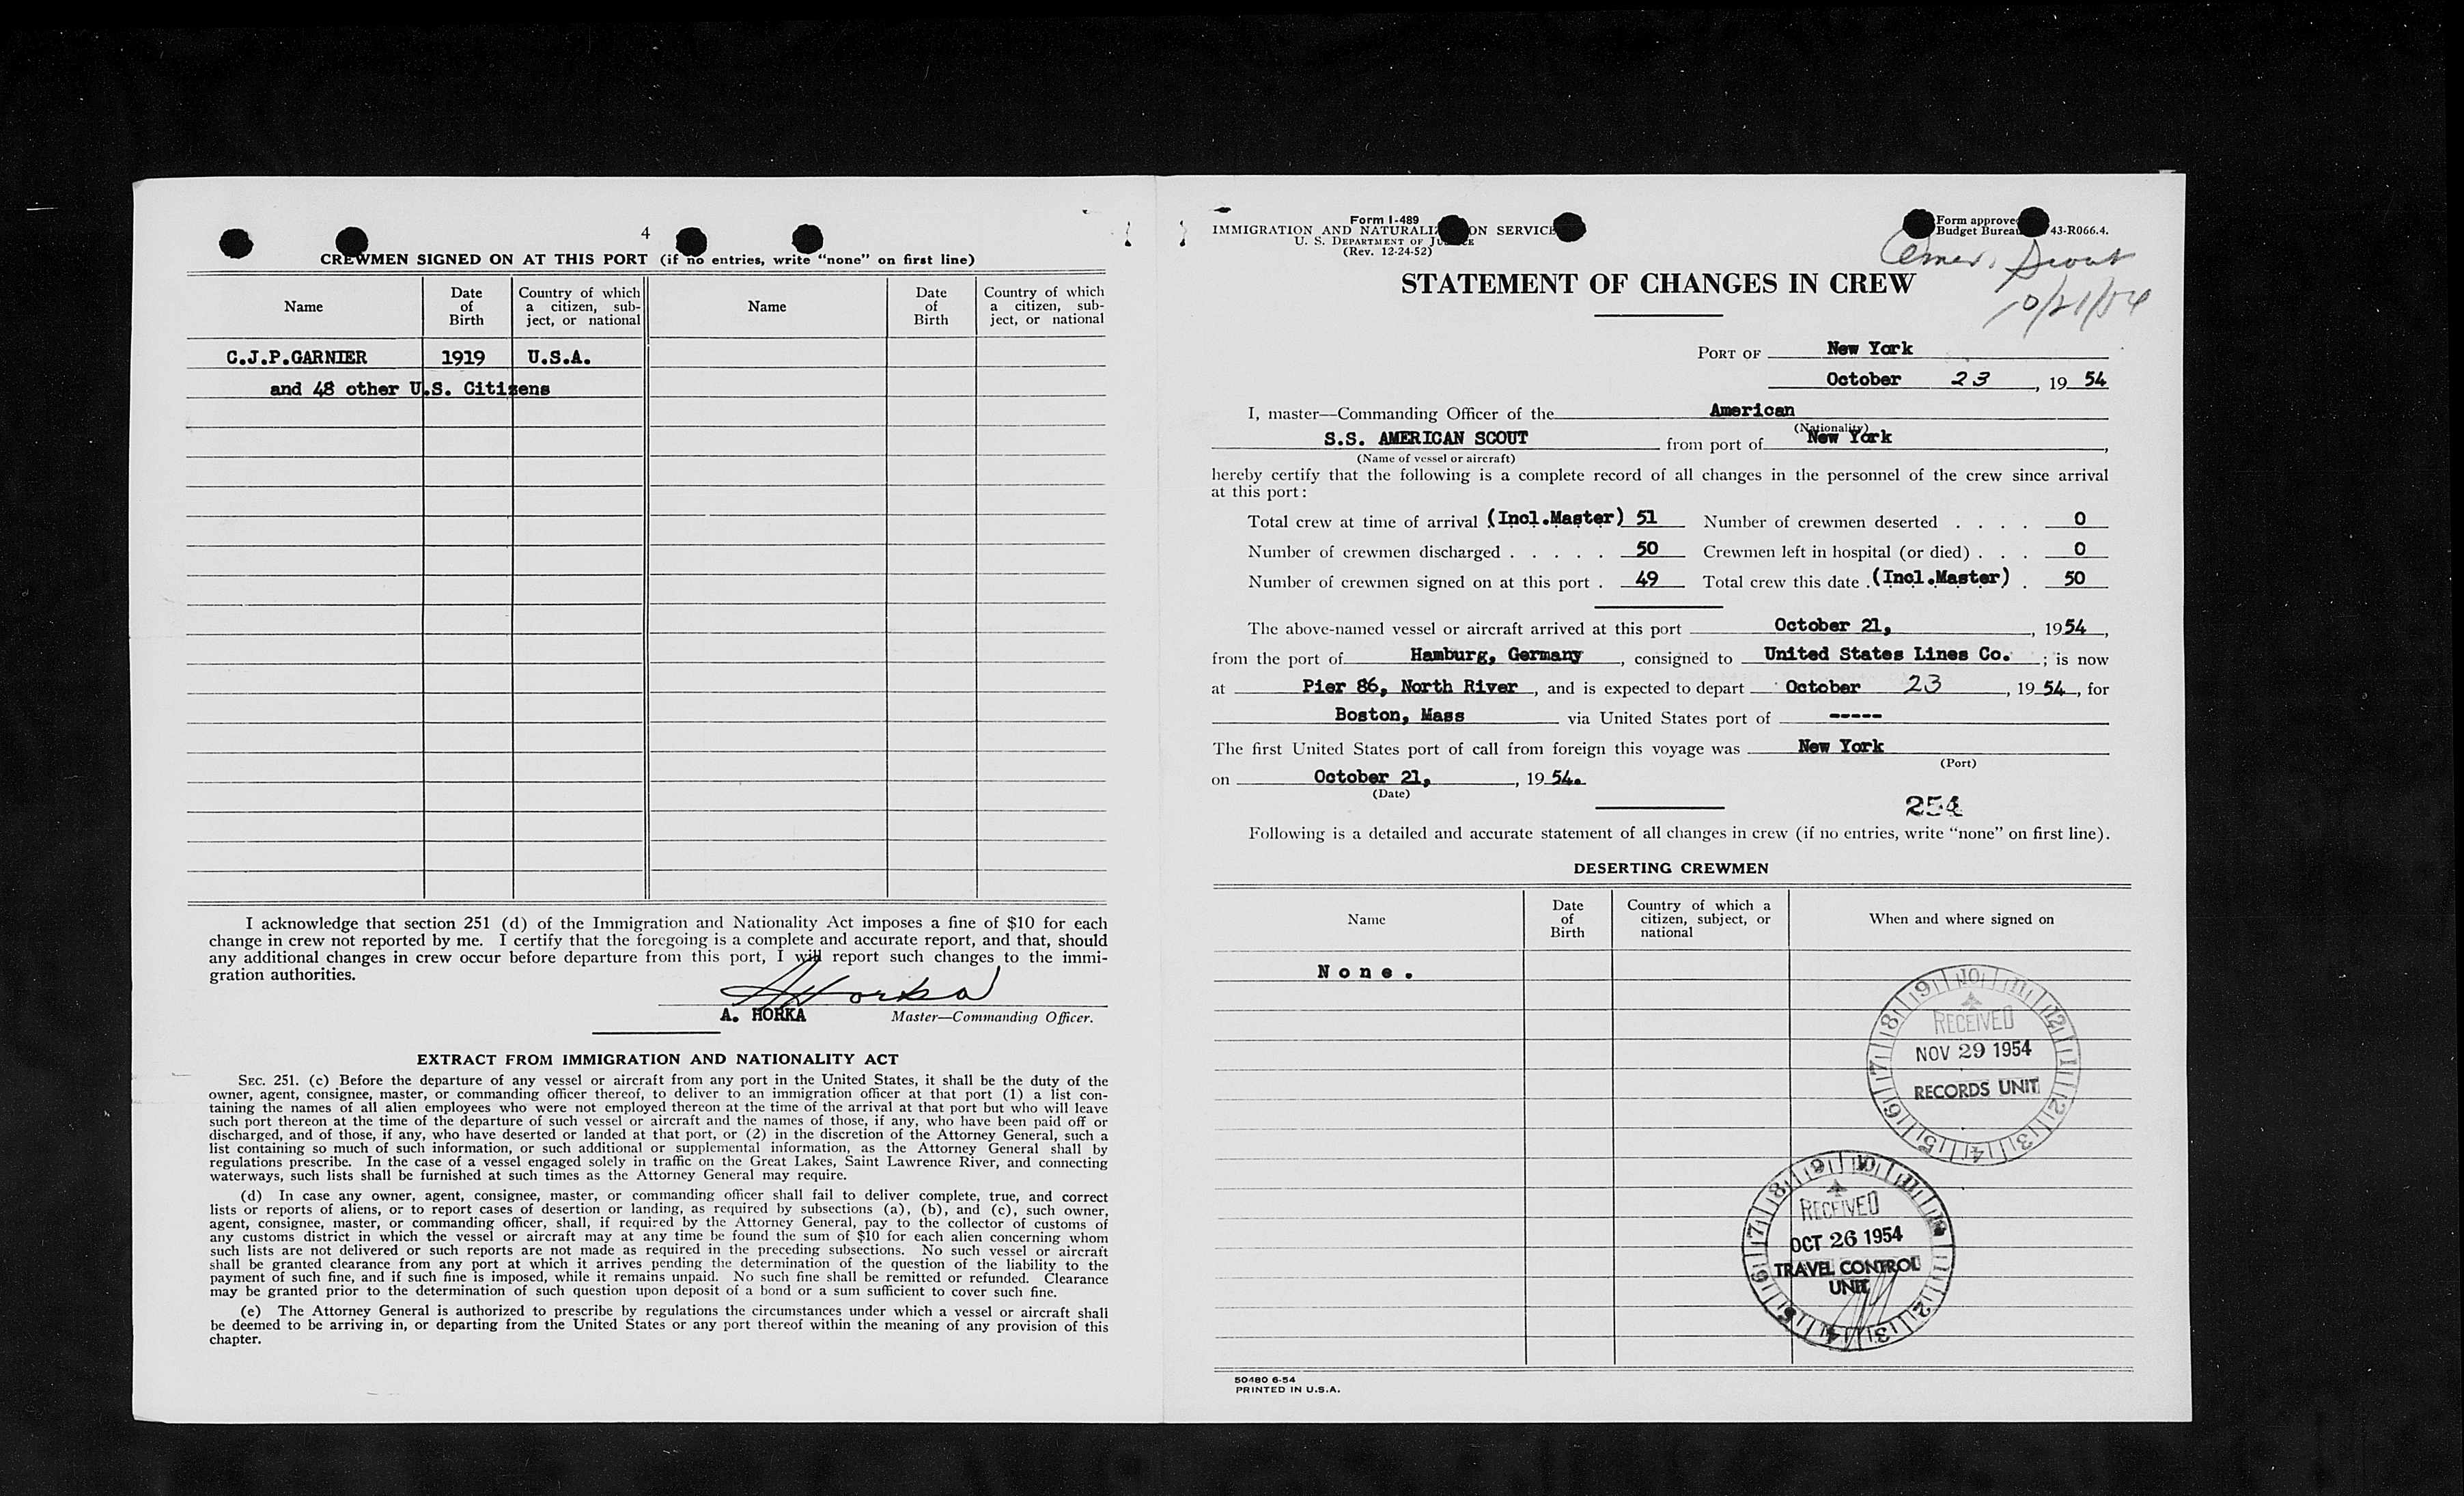 4
CREWMEN SIGNED ON AT THIS PORT (if no entries, write "none" on first line)
Name
Date of Birth
Country of which a citizen, subject, or national
Name
Date of Birth
Country of which a citizen, subject, or national
C.J.P.GARNIER 1919 U.S.A.
and 48 other U.S. Citizens
I acknowledge that section 251 (d) of the Immigration and Nationality Act imposes a fine of $10 for each
change in crew not reported by me. I certify that the foregoing is a complete and accurate report, and that, should
any additional changes in crew occur before departure from this port, I will report such changes to the immi-
gration authorities.
A Horka
A. HORKA Master—Commanding Officer.
EXTRACT FROM IMMIGRATION AND NATIONALITY ACT
SEC. 251. (c) Before the departure of any vessel or aircraft from any port in the United States, it shall be the duty of the
owner, agent, consignee, master, or commanding officer thereof, to deliver to an immigration officer at that port (1) a list con-
taining the names of all alien employees who were not employed thereon at the time of the arrival at that port but who will leave
such port thereon at the time of the departure of such vessel or aircraft and the names of those, if any, who have been paid off or
discharged, and of those, if any, who have deserted or landed at that port, or (2) in the discretion of the Attorney General, such a
list containing so much of such information, or such additional or supplemental information, as the Attorney General shall by
regulations prescribe. In the case of a vessel engaged solely in traffic on the Great Lakes, Saint Lawrence River, and connecting
waterways, such lists shall be furnished at such times as the Attorney General may require.
(d) In case any owner, agent, consignee, master, or commanding officer shall fail to deliver complete, true, and correct
lists or reports of aliens, or to report cases of desertion or landing, as required by subsections (a), (b), and (c), such owner,
agent, consignee, master, or commanding officer, shall, if required by the Attorney General, pay to the collector of customs of
any customs district in which the vessel or aircraft may at any time be found the sum of $10 for each alien concerning whom
such lists are not delivered or such reports are not made as required in the preceding subsections. No such vessel or aircraft
shall be granted clearance from any port at which it arrives pending the determination of the question of the liability to the
payment of such fine, and if such fine is imposed, while it remains unpaid. No such fine shall be remitted or refunded. Clearance
may be granted prior to the determination of such question upon deposit of a bond or a sum sufficient to cover such fine.
(e) The Attorney General is authorized to prescribe by regulations the circumstances under which a vessel or aircraft shall
be deemed to be arriving in, or departing from the United States or any port thereof within the meaning of any provision of this
chapter.
Form I-489
IMMIGRATION AND NATURALIZATION SERVICE
U. S. DEPARTMENT OF JUSTICE
(Rev. 12-24-52)
Form approved
Budget Bureau 43-R066.4.
Amer. Scout
10/21/54
STATEMENT OF CHANGES IN CREW
PORT OF New York
October 23, 19 54
I, master—Commanding Officer of the American
(Nationality)
S.S. AMERICAN SCOUT from port of New York,
(Name of vessel or aircraft)
hereby certify that the following is a complete record of all changes in the personnel of the crew since arrival
at this port:
Total crew at time of arrival (Incl.Master) 51 Number of crewmen deserted . . . . 0
Number of crewmen discharged . . . . . 50 Crewmen left in hospital (or died) . . . 0
Number of crewmen signed on at this port . 49 Total crew this date .(Incl.Master) . 50
The above-named vessel or aircraft arrived at this port October 21, , 1954,
from the port of Hamburg, Germany, consigned to United States Lines Co. ; is now
at Pier 86, North River, and is expected to depart October 23, 19 54, for
Boston, Mass via United States port of -----
The first United States port of call from foreign this voyage was New York
(Port)
on October 21, , 19 54.
(Date)
254
Following is a detailed and accurate statement of all changes in crew (if no entries, write "none" on first line).
DESERTING CREWMEN
Name
Date of Birth
Country of which a citizen, subject, or national
When and where signed on
None.
RECEIVED
NOV 29 1954
RECORDS UNIT
RECEIVED
OCT 26 1954
TRAVEL CONTROL
UNIT
50480 6-54
PRINTED IN U.S.A.